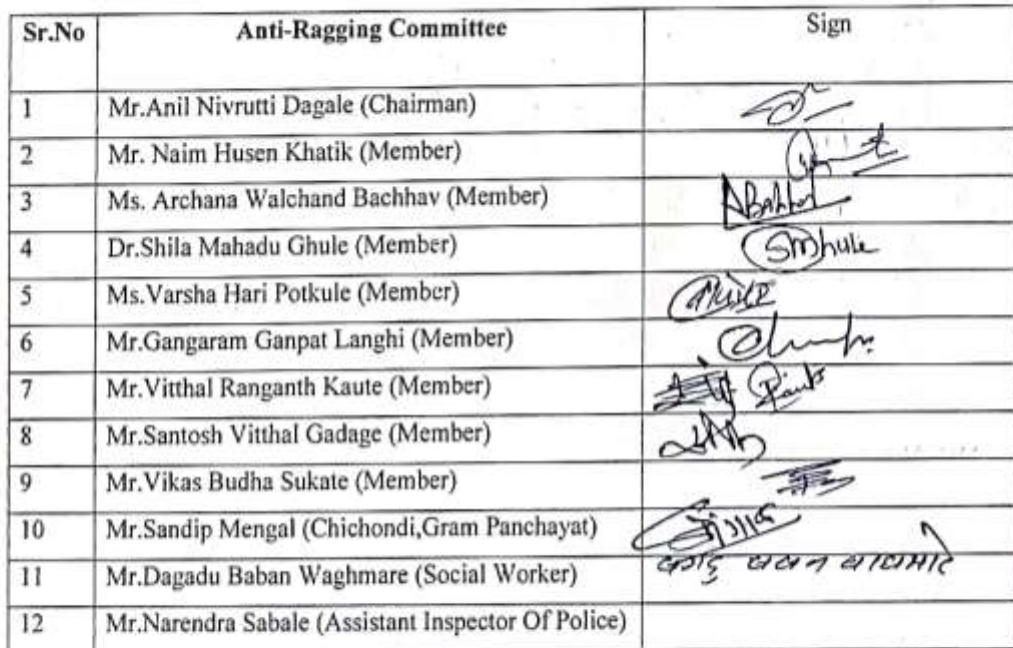 Sr.No Anti-Ragging Committee Sign
1 Mr.Anil Nivrutti Dagale (Chairman)
2 Mr. Naim Husen Khatik (Member)
3 Ms. Archana Walchand Bachhav (Member)
4 Dr.Shila Mahadu Ghule (Member) SMGhule
5 Ms.Varsha Hari Potkule (Member)
6 Mr.Gangaram Ganpat Langhi (Member)
7 Mr.Vitthal Ranganth Kaute (Member)
8 Mr.Santosh Vitthal Gadage (Member)
9 Mr.Vikas Budha Sukate (Member)
10 Mr.Sandip Mengal (Chichondi,Gram Panchayat)
11 Mr.Dagadu Baban Waghmare (Social Worker) दगडु बबन वाघमारे
12 Mr.Narendra Sabale (Assistant Inspector Of Police)